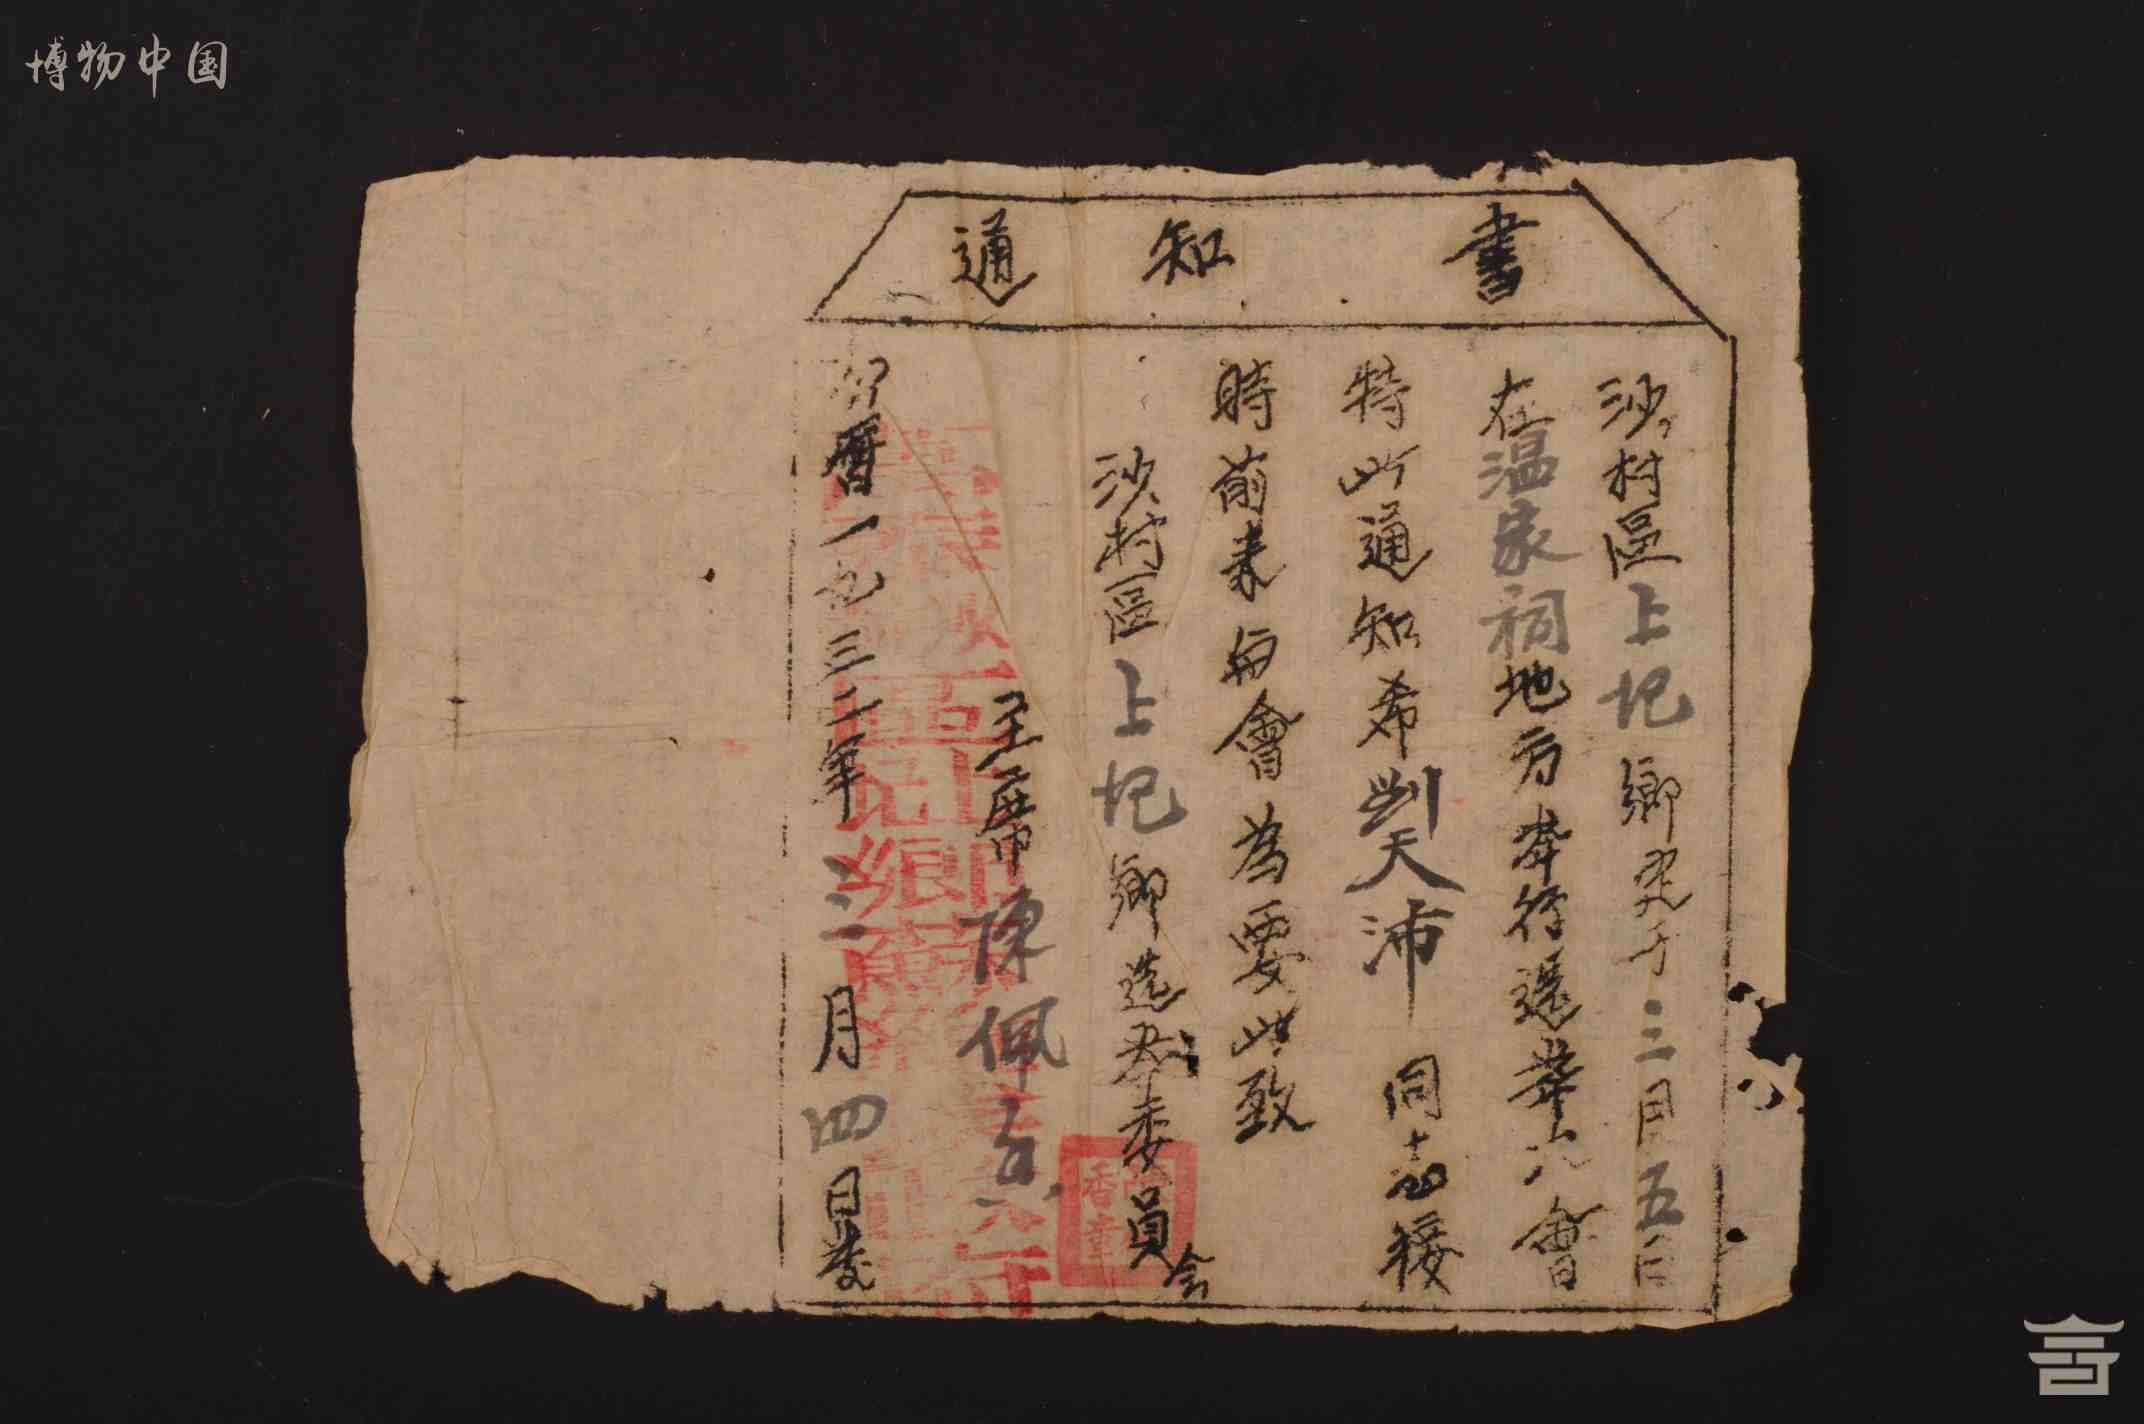 博物中国
通知書
沙村區上圯鄉定于三月五日
在温家祠地方舉行選舉大會
特此通知希劉天沛同志接
時前來與會為要此致
沙村區上圯鄉选举委員会
主席陳佩香
香章
暦一九三二年三月四日發